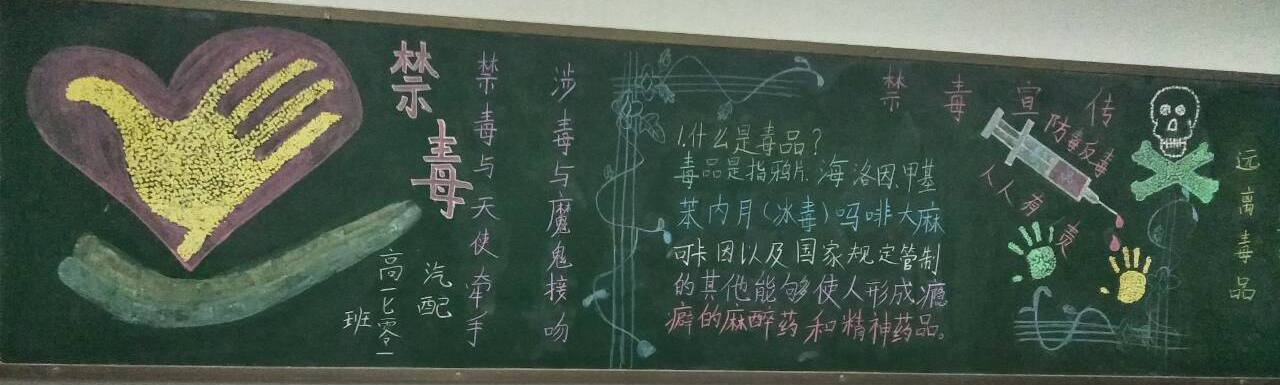 禁毒
禁毒与天使牵手
涉毒与魔鬼接吻
汽配
高一七零一
班
禁毒宣传
1.什么是毒品?
毒品是指鸦片.海洛因.甲基
苯内月(冰毒)吗啡大麻
可卡因以及国家规定管制
的其他能够使人形成瘾
癖的麻醉药和精神药品。
防毒反毒
人人有责
远离毒品